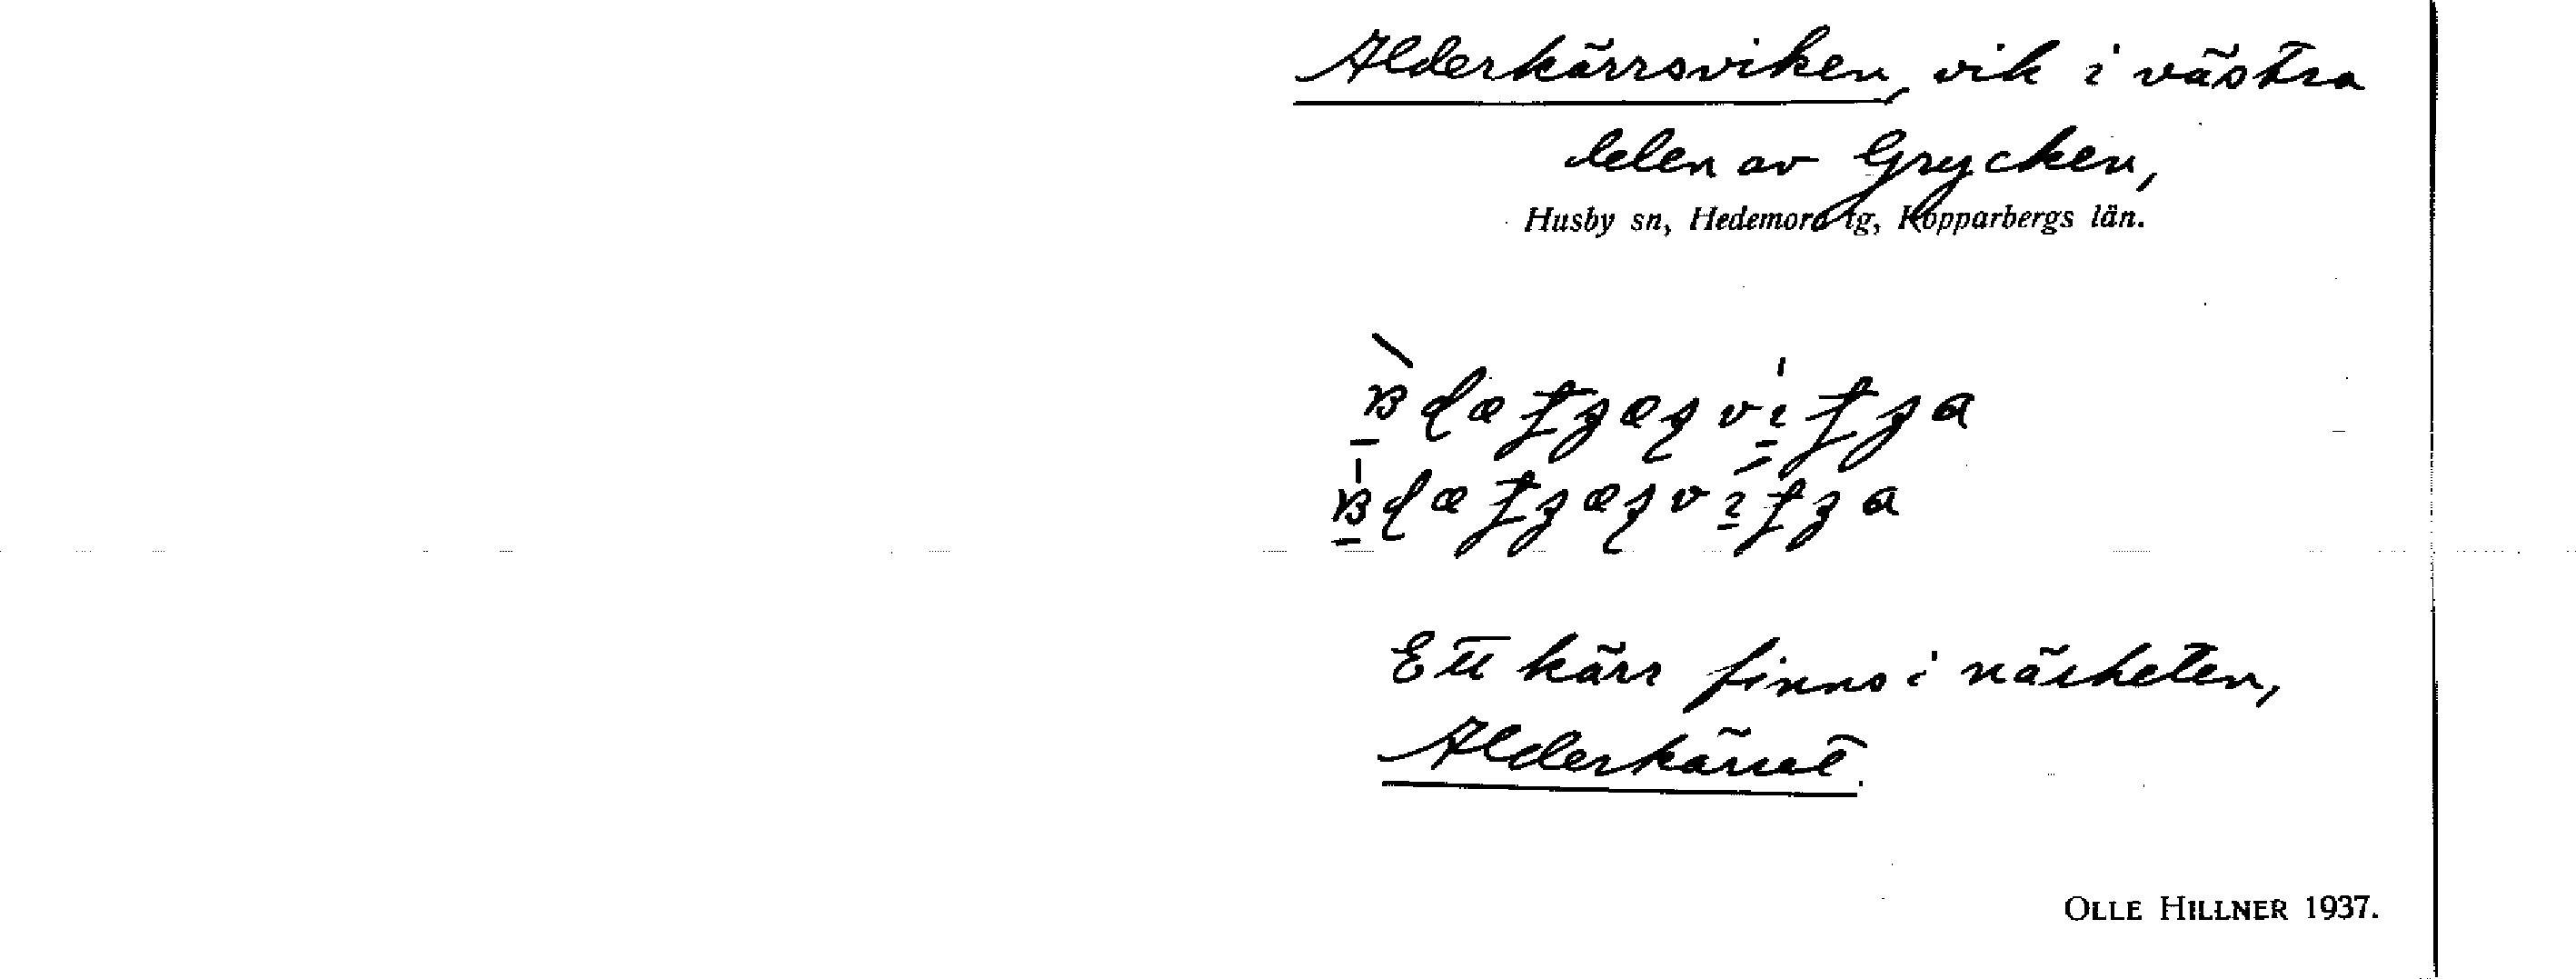 Alderkärrsviken, vik i västra
delen av Grycken,
Husby sn, Hedemora tg, Kopparbergs län.
Ett kärr finns i närheten,
Alderkärret.
OLLE HILLNER 1937.